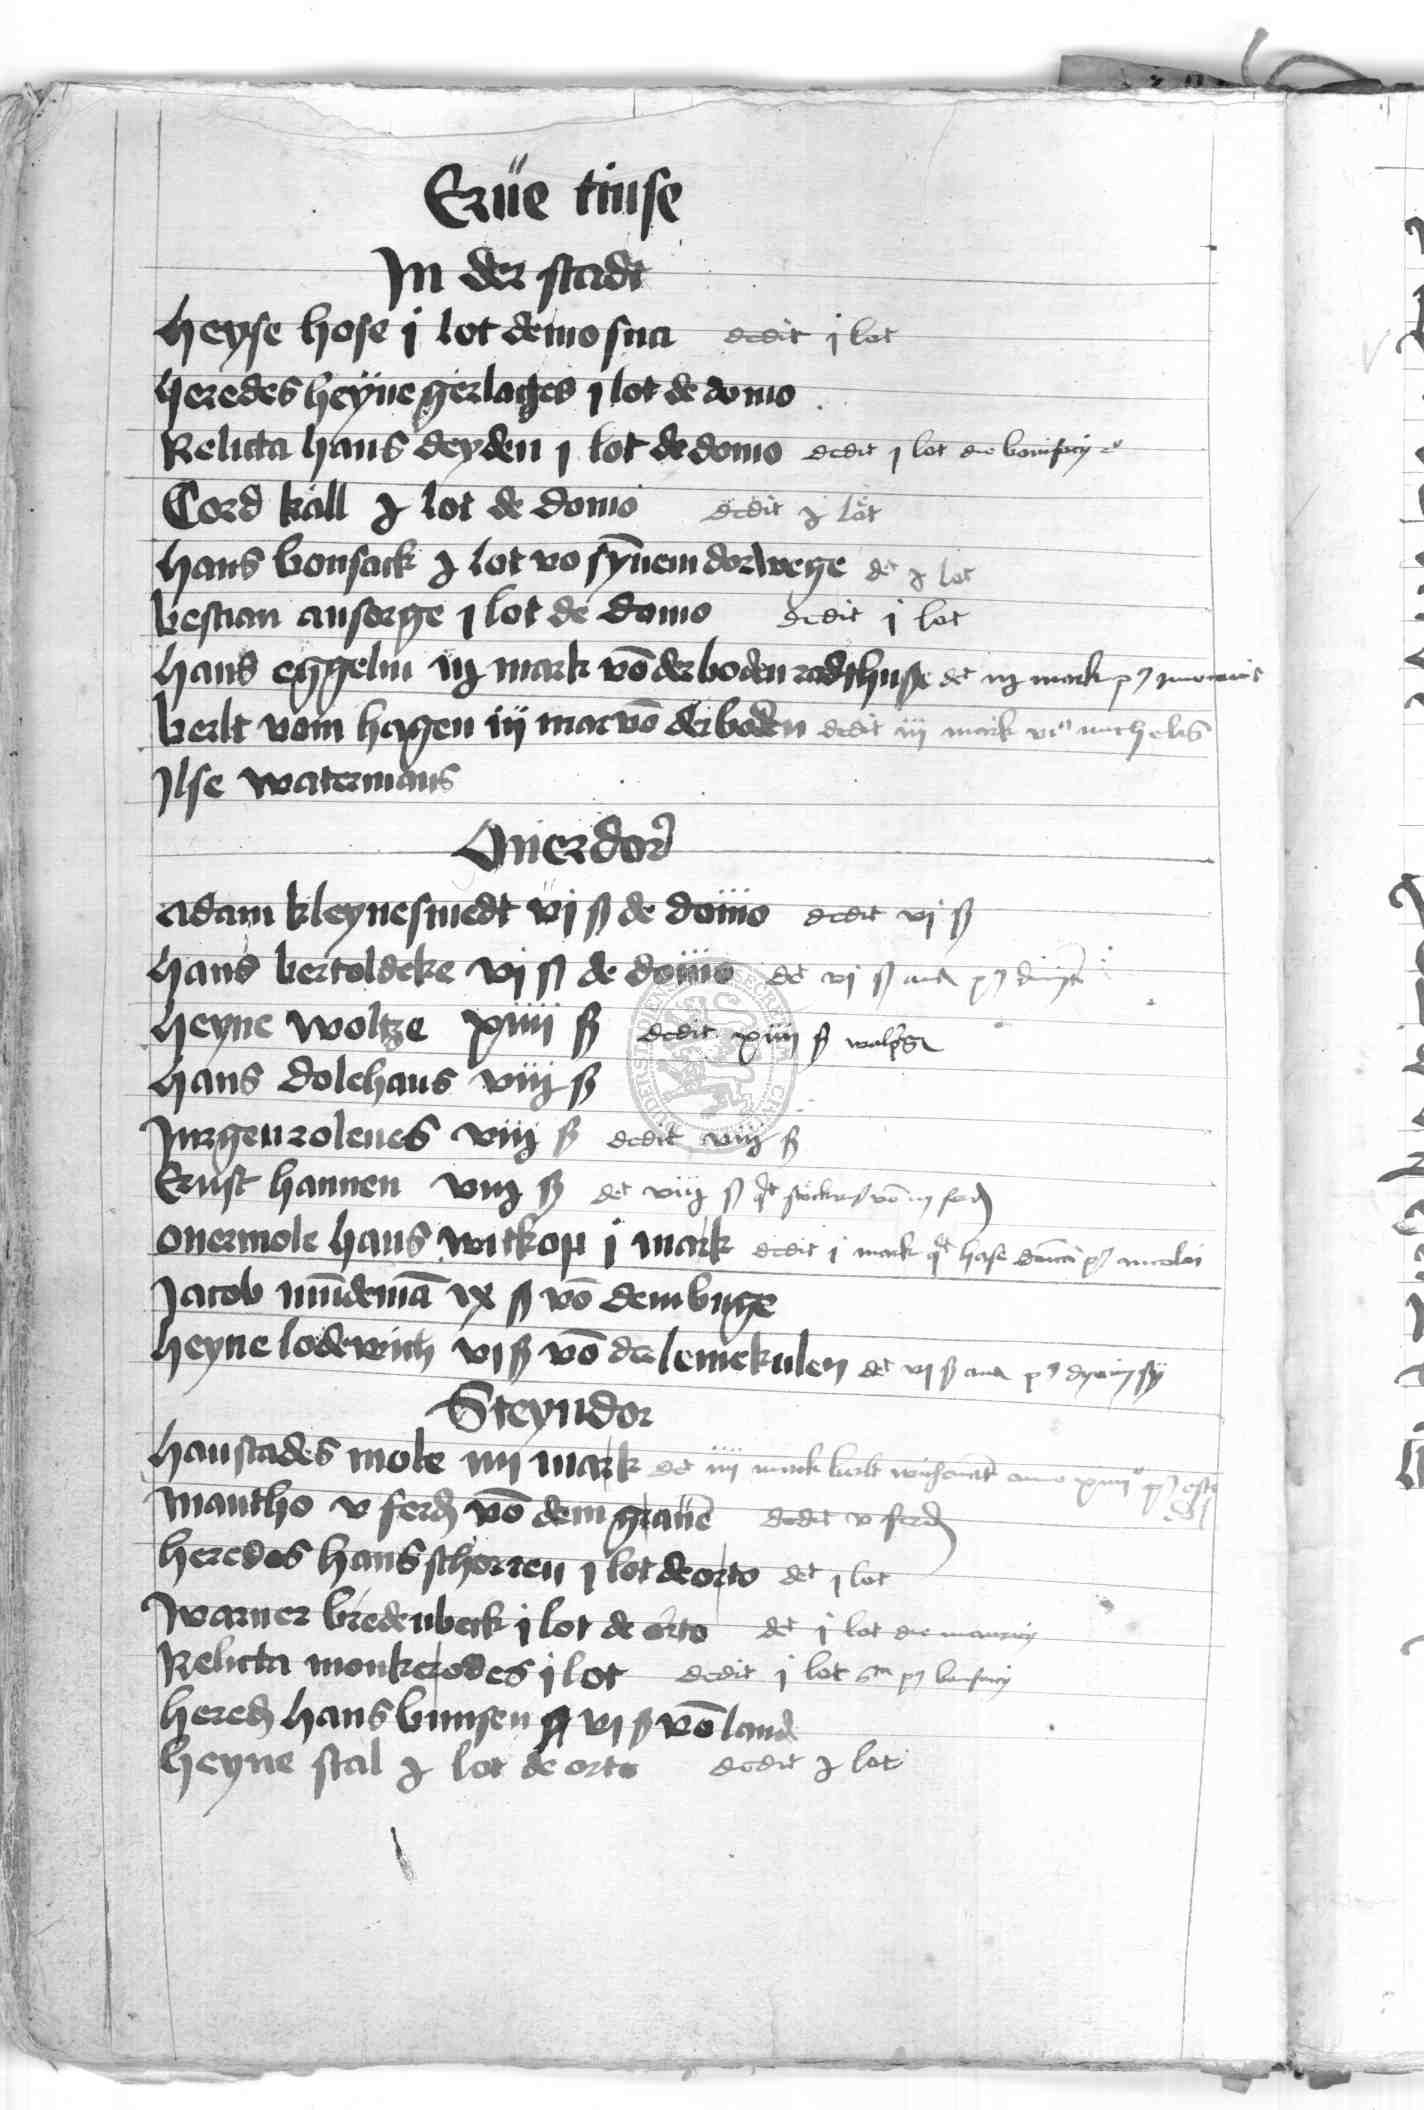 Erve tinse
In der stadt
heyse hose j lot de mo sua dedit j lot
heredes heyne gerlages j lot de domo
Relicta hans deyden j lot de domo dedit j lot die bonifacij
Cord kall j lot de domo dedit j lot
hans bonsack j lot vo synem dorwege det j lot
bestian ansorge j lot de domo dedit j lot
hans eggelin iij mark vō der boden radthuse det iij mark p9
berlt vom hagen iij marc vō der boden dedit iij mark michelis
Ilse watermans
Overdor
adam kleynesmedt vj ß de domo dedit vj ß
hans bertoldeke vj ß de domo det vj ß
heyne woltze xiiij ß dedit xiiij ß walpg
hans dolehans viij ß
Jurgen roleves viij ß dedit viij ß
Ernst hannen viij ß det viij ß
overmole hans witkop j mark dedit j mark hase p9 nicolai
Jacob mūdemā ix ß vō dem buge
heyne lodewich vj ß vō der lemekulen det vj ß
Steyndor
hanstades mole iiij mark det iiij mark berlt
mantho v ferd vō dem graven dedit v ferd
heredes hans schorren j lot de orto det j lot
warner bredenbeck j lot de orto det j lot die mauricij
Relicta monkerodes j lot dedit j lot p9 bonifacij
hered hans bunsen vj ß vō land
heyne stal j lot de orto dedit j lot